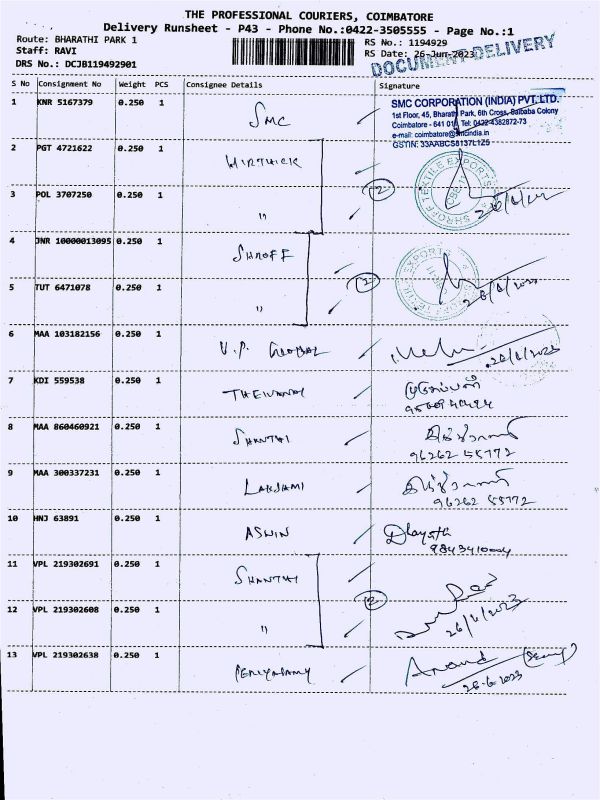 THE PROFESSIONAL COURIERS, COIMBATORE
Delivery Runsheet - P43 - Phone No.:0422-3505555 - Page No.:1
Route: BHARATHI PARK 1
RS No.: 1194929
Staff: RAVI
RS Date: 26-Jun-2023
DRS No.: DCJB119492901
DOCUMENT DELIVERY
S No Consignment No Weight PCS Consignee Details Signature
1 KNR 5167379 0.250 1 SMC
SMC CORPORATION (INDIA) PVT. LTD.
1st Floor, 45, Bharathi Park, 6th Cross, Saibaba Colony
Coimbatore - 641 011, Tel: 0422-4382872-73
e-mail: coimbatore@smcindia.in
GSTIN: 33AABCS8137L1Z5
2 PGT 4721622 0.250 1 HIRTHICK
SHROFF TEXTILE EXPORTS
3 POL 3707250 0.250 1 " 2
4 JNR 10000013095 0.250 1 SHROFF
5 TUT 6471078 0.250 1 " 2 26/6/2023
6 MAA 103182156 0.250 1 V.P. GLOBAL 26/6/2023
7 KDI 559538 0.250 1
8 MAA 860460921 0.250 1 SHANTHI
96262 55772
9 MAA 300337231 0.250 1 LAKSHMI
96262 55772
10 HNJ 63891 0.250 1 ASWIN
9843410004
11 VPL 219302691 0.250 1 SHANTHI
12 VPL 219302608 0.250 1 " 2 26/6/2023
13 VPL 219302638 0.250 1 PERIYASAMY Anand
26-6-2023